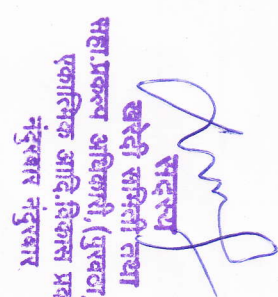 सदस्य
खरेदी समिती तथा
सहा.प्रकल्प अधिकारी,(पुरवठा
एकात्मिक आदि.विकास प्र
नंदुरबार नंदुरबार